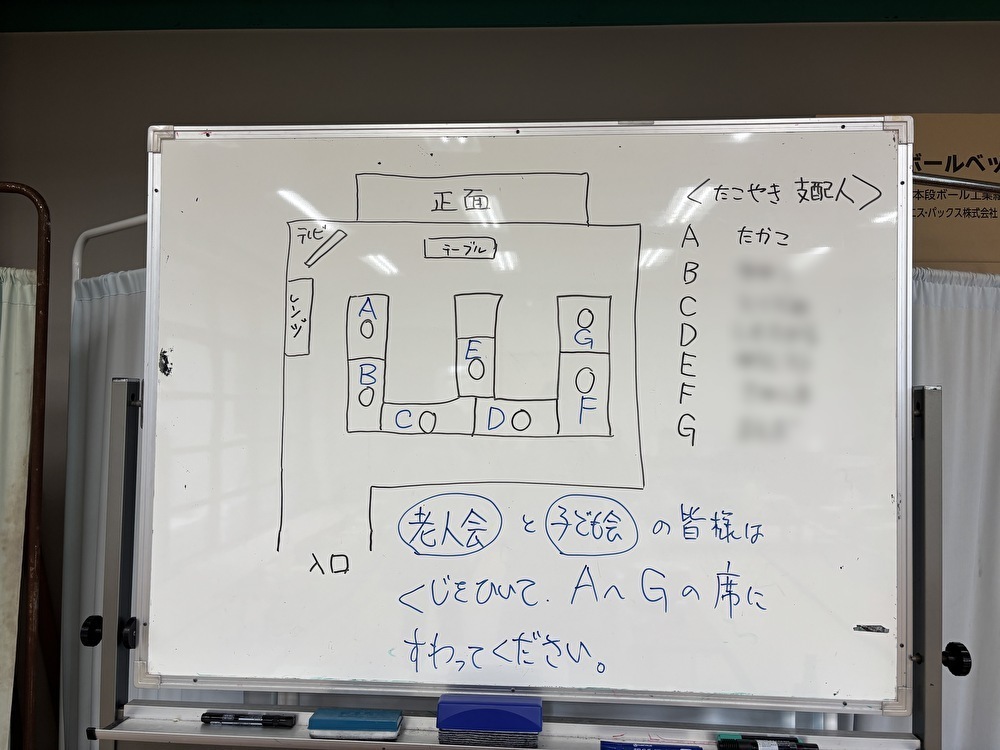 正面
テレビ
テーブル
レンジ
A
B
C
D
E
F
G
入口
<たこやき 支配人>
A たかこ
B
C
D
E
F
G
老人会 と 子ども会 の皆様は
くじをひいて、A〜Gの席に
すわってください。
ボールベッ
本段ボール工業組
エス・パックス株式会社